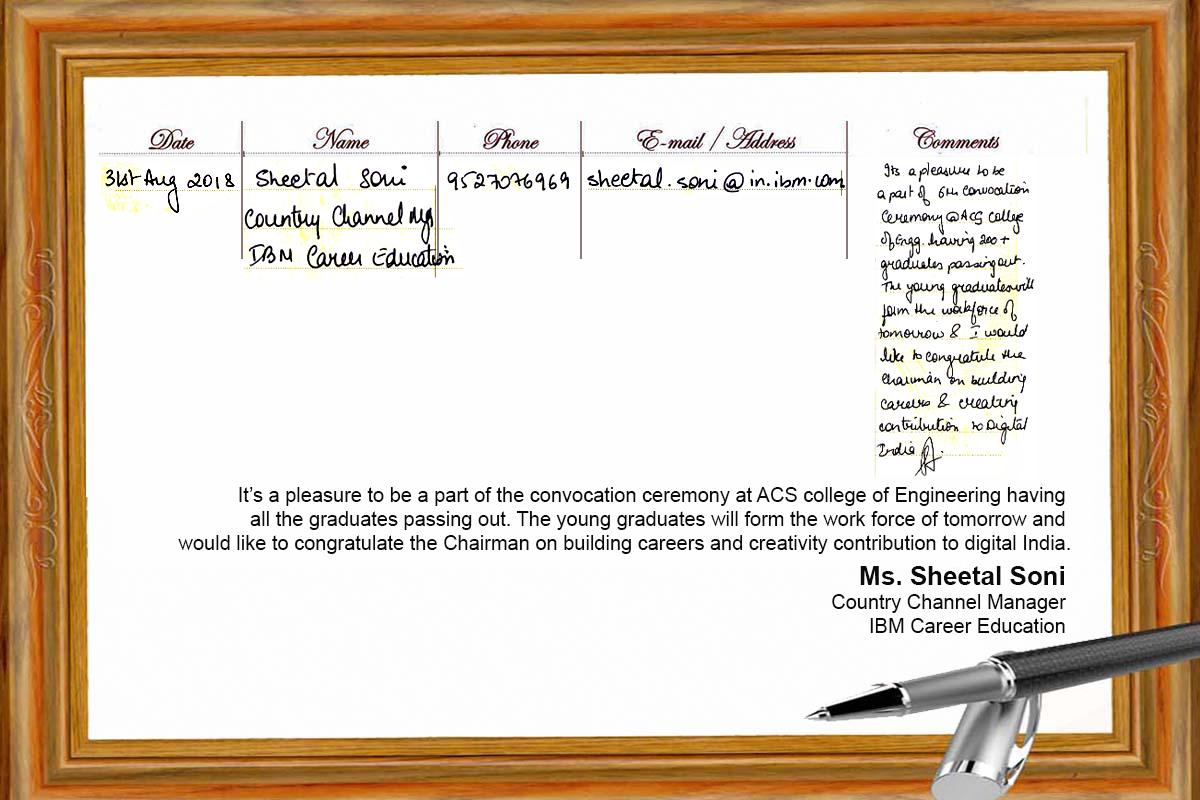 Date Name Phone E-mail / Address Comments
31st Aug 2018 Sheetal Soni 9527076969 sheetal.soni@in.ibm.com
Country Channel Mgr
IBM Career Education
Its a pleasure to be
a part of 6th Convocation
Ceremony @ ACS college
of Engg. having 200+
graduates passing out.
The young graduates will
form the workforce of
tomorrow & I would
like to congratule the
Chairman on building
careers & creating
contribution to Digital
India
It's a pleasure to be a part of the convocation ceremony at ACS college of Engineering having
all the graduates passing out. The young graduates will form the work force of tomorrow and
would like to congratulate the Chairman on building careers and creativity contribution to digital India.
Ms. Sheetal Soni
Country Channel Manager
IBM Career Education